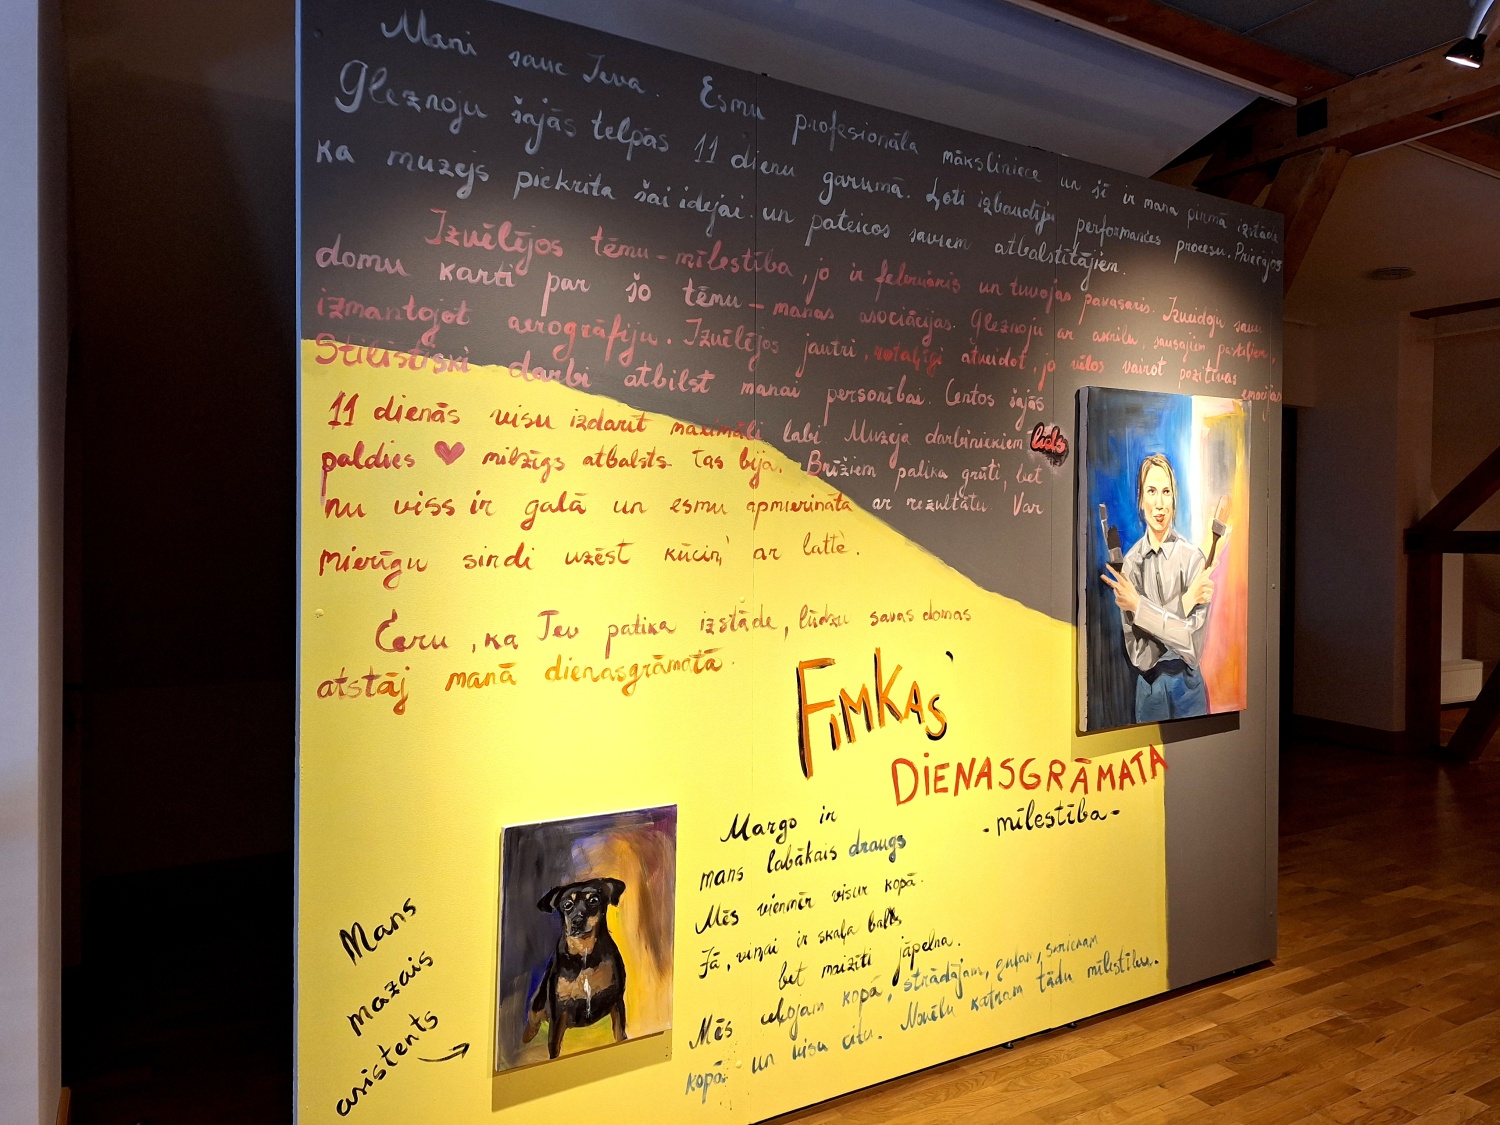 Mani sauc Ieva. Esmu profesionāla māksliniece un šī ir mana pirmā izstāde
Gleznoju šajās telpās 11 dienu garumā. Ļoti izbaudīju performances procesu. Priecājos
ka muzejs piekrita šai idejai un pateicos saviem atbalstītājiem.
Izvēlējos tēmu - mīlestība, jo ir februāris un tuvojas pavasaris. Izveidoju savu
domu karti par šo tēmu - manas asociācijas. Gleznoju ar akrilu, sausajiem pasteļiem,
izmantojot aerogrāfiju. Izvēlējos jautri, rotaļīgi atveidot, jo vēlos vairot pozitīvas emocijas
Stilistiski darbi atbilst manai personībai. Centos šajās
11 dienās visu izdarīt maximāli labi Muzeja darbiniekiem liels
paldies ♥ milzīgs atbalsts tas bija. Brīžiem palika grūti, bet
nu viss ir galā un esmu apmierināta ar rezultātu Var
mierīgu sirdi uzēst kūciņ' ar lattè.
Ceru, ka Jev patika izstāde, lūdzu savas domas
atstāj manā dienasgrāmatā.
FiMKAS'
DiENASGRĀMATA
- mīlestība -
Margo ir
mans labākais draugs
Mēs vienmēr visur kopā.
Jā, viņai ir skaļa balss
bet maizīti jāpelna.
Mēs kopā, strādājam, guļam,
kopā un visu citu. Novēlu katram tādu mīlestību.
Mans
mazais
asistents